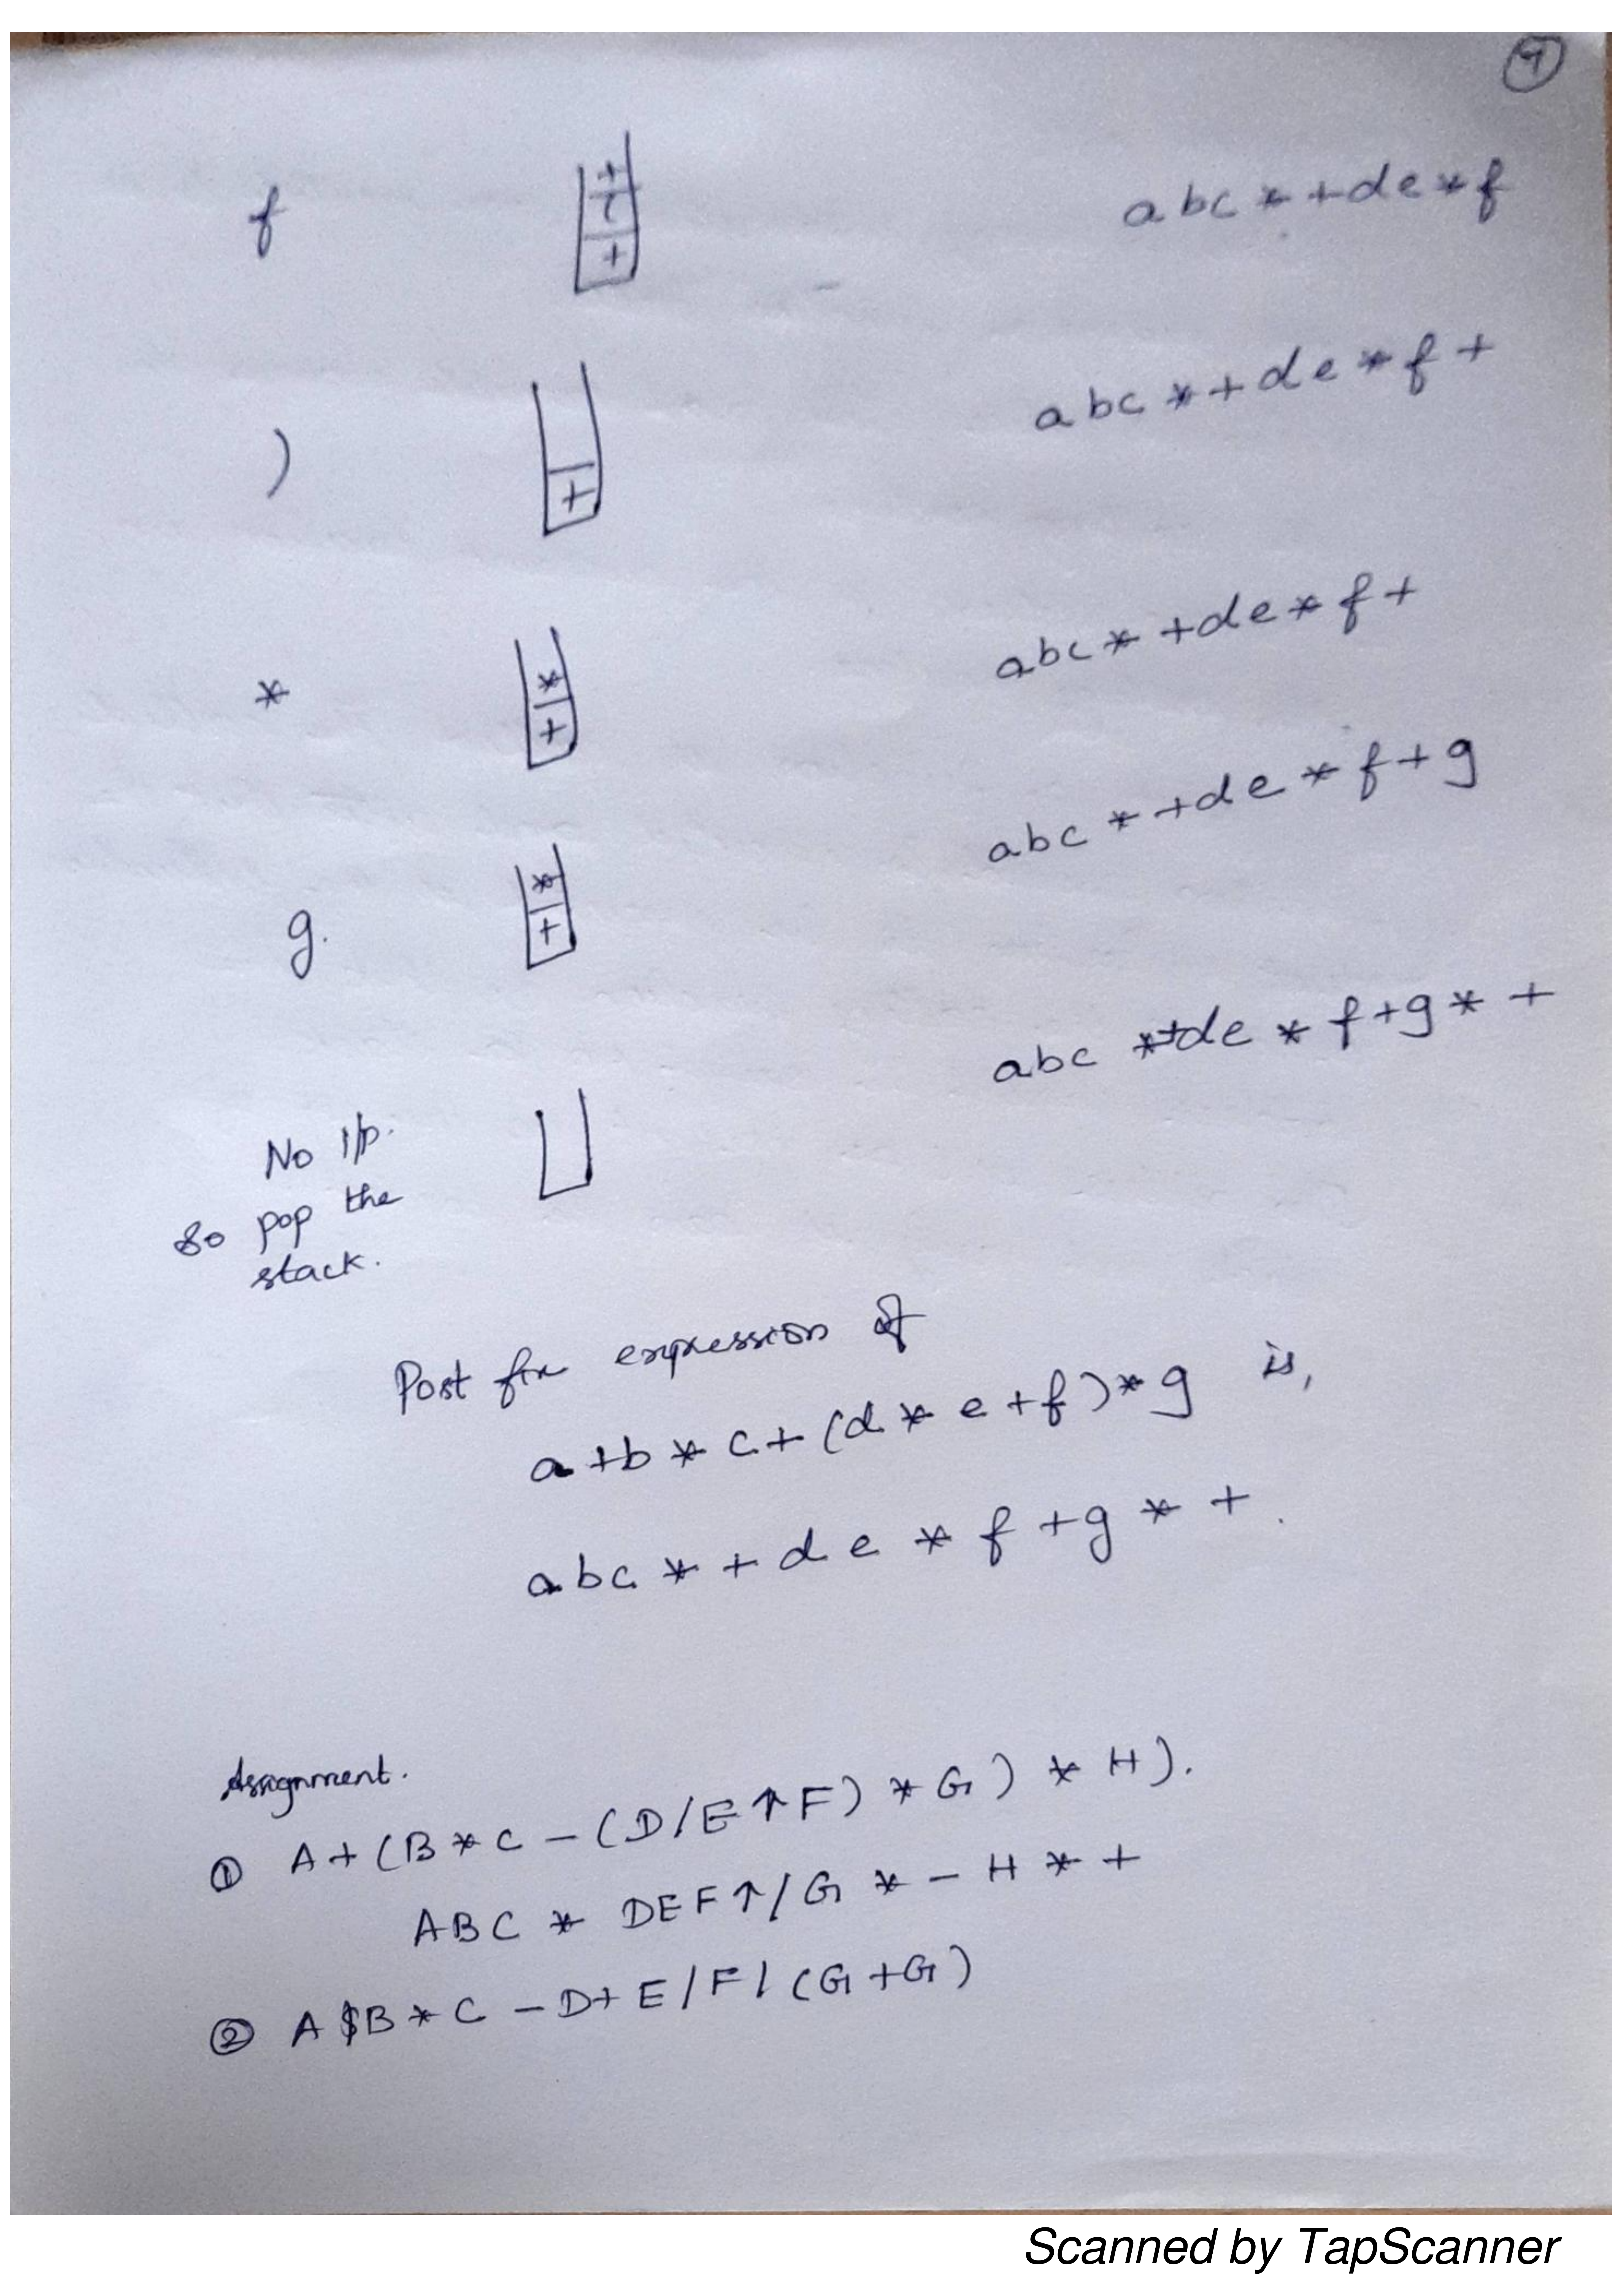 7
f + ( + abc*+de*f
) + abc*+de*f+
* * + abc*+de*f+
g. * + abc*+de*f+g
abc*+de*f+g*+
No I/p.
so pop the
stack.
Post fix expression of
a+b*c+(d*e+f)*g is,
abc*+de*f+g*+.
Assignment.
① A+(B*C-(D/E↑F)*G)*H).
ABC*DEF↑/G*-H*+
② A$B*C-D+E/F/(G+G)
Scanned by TapScanner